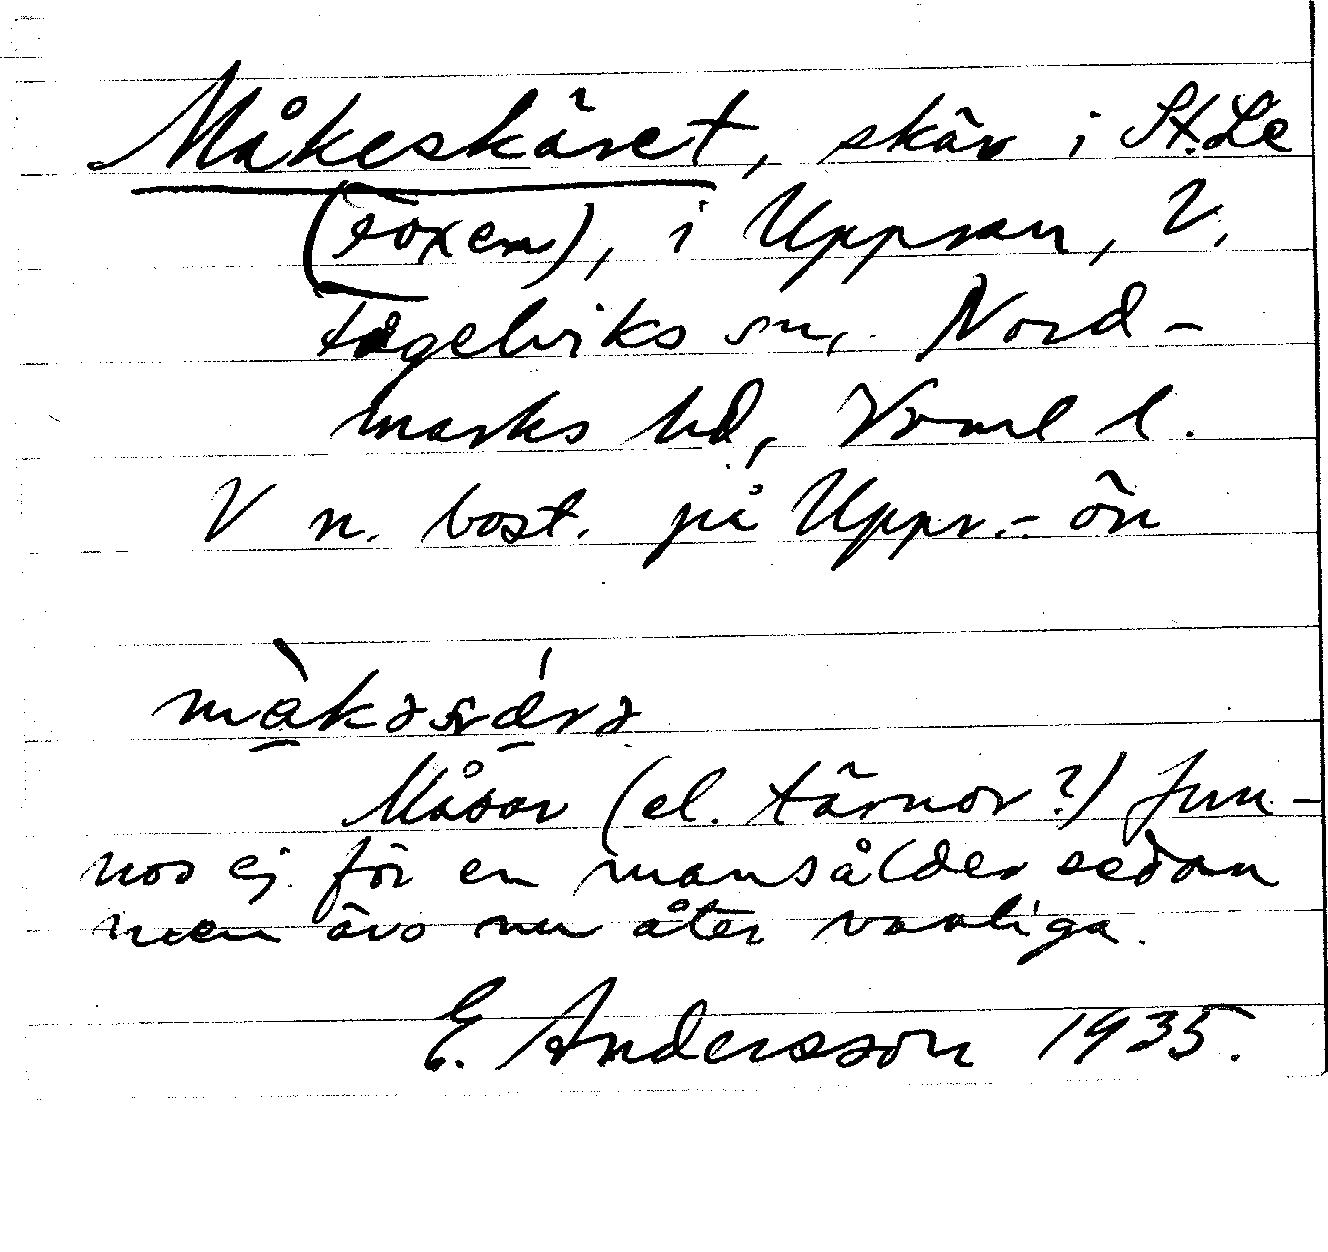 Måkeskäret, skär i St. Le
(Foxen), i Uppran, V.
Fågelviks sn, Nord-
marks hd, Vrml l.
V n. bost. på Uppr.-ön
Måsar (el. tärnor?) fun-
nos ej för en mansålder sedan
men äro nu åter vanliga.
E. Andersson 1935.